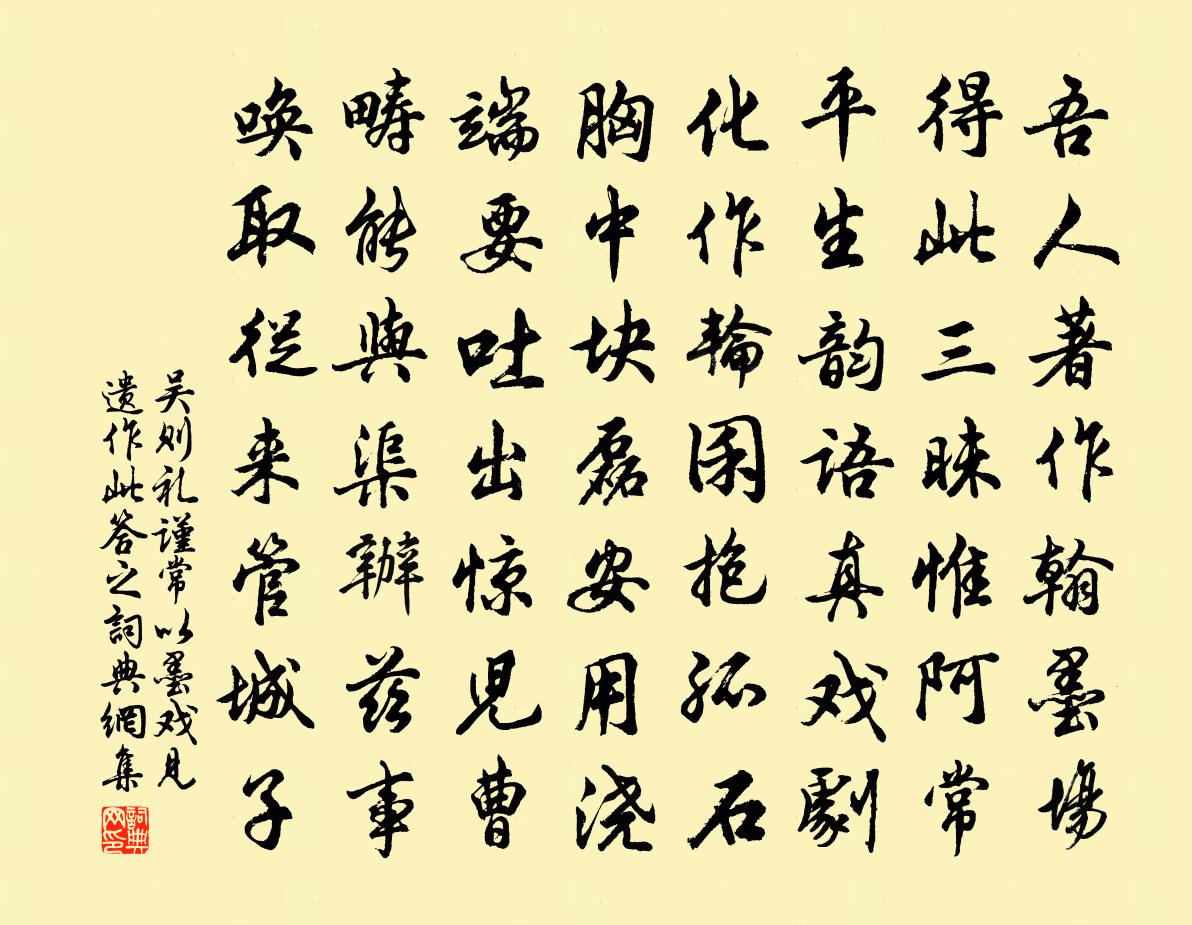 吾人著作翰墨場
得此三昧惟阿常
平生韵語真戏劇
化作輪囷抱孤石
胸中块磊安用浇
端要吐出惊児曹
疇能與渠辦茲事
唤取從来管城子
吴则礼謹常以墨戏見
遺作此答之詞典網集
詞典
网印